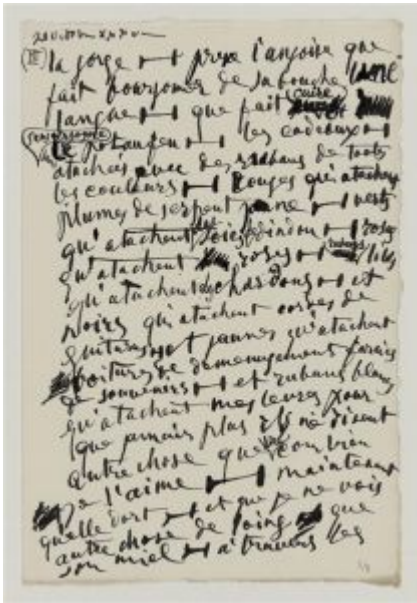 (III) la gorge ⊢⊣ prex l'angoise que
fait bourgonner de sa bouche une
langue ⊢⊣ que fait cuire
le potaufeu ⊢⊣ les cadeaux ⊢⊣
atachés avec des rubans de touts
les couleurs ⊢⊣ rouges qu'atachent
plumes de serpent jaune ⊢⊣ verts
qu'atachent soies dindon ⊢⊣ rose
qu'atachent roses ⊢⊣ rubans lilas
qu'atachent chardons ⊢⊣ et
noirs qu'atachent cordes de
guitares ⊢⊣ et jaunes qu'atachent
voitures de demenagements farcies
de souvenirs ⊢⊣ et rubans blancs
qu'atachent mes levres pour
que jamais plus ne disent
autre chose que combien
je l'aime ⊢⊣ maintenant
quelle dort ⊢⊣ et que je ne vois
autre chose de loing que
son miel ⊢⊣ a travers les